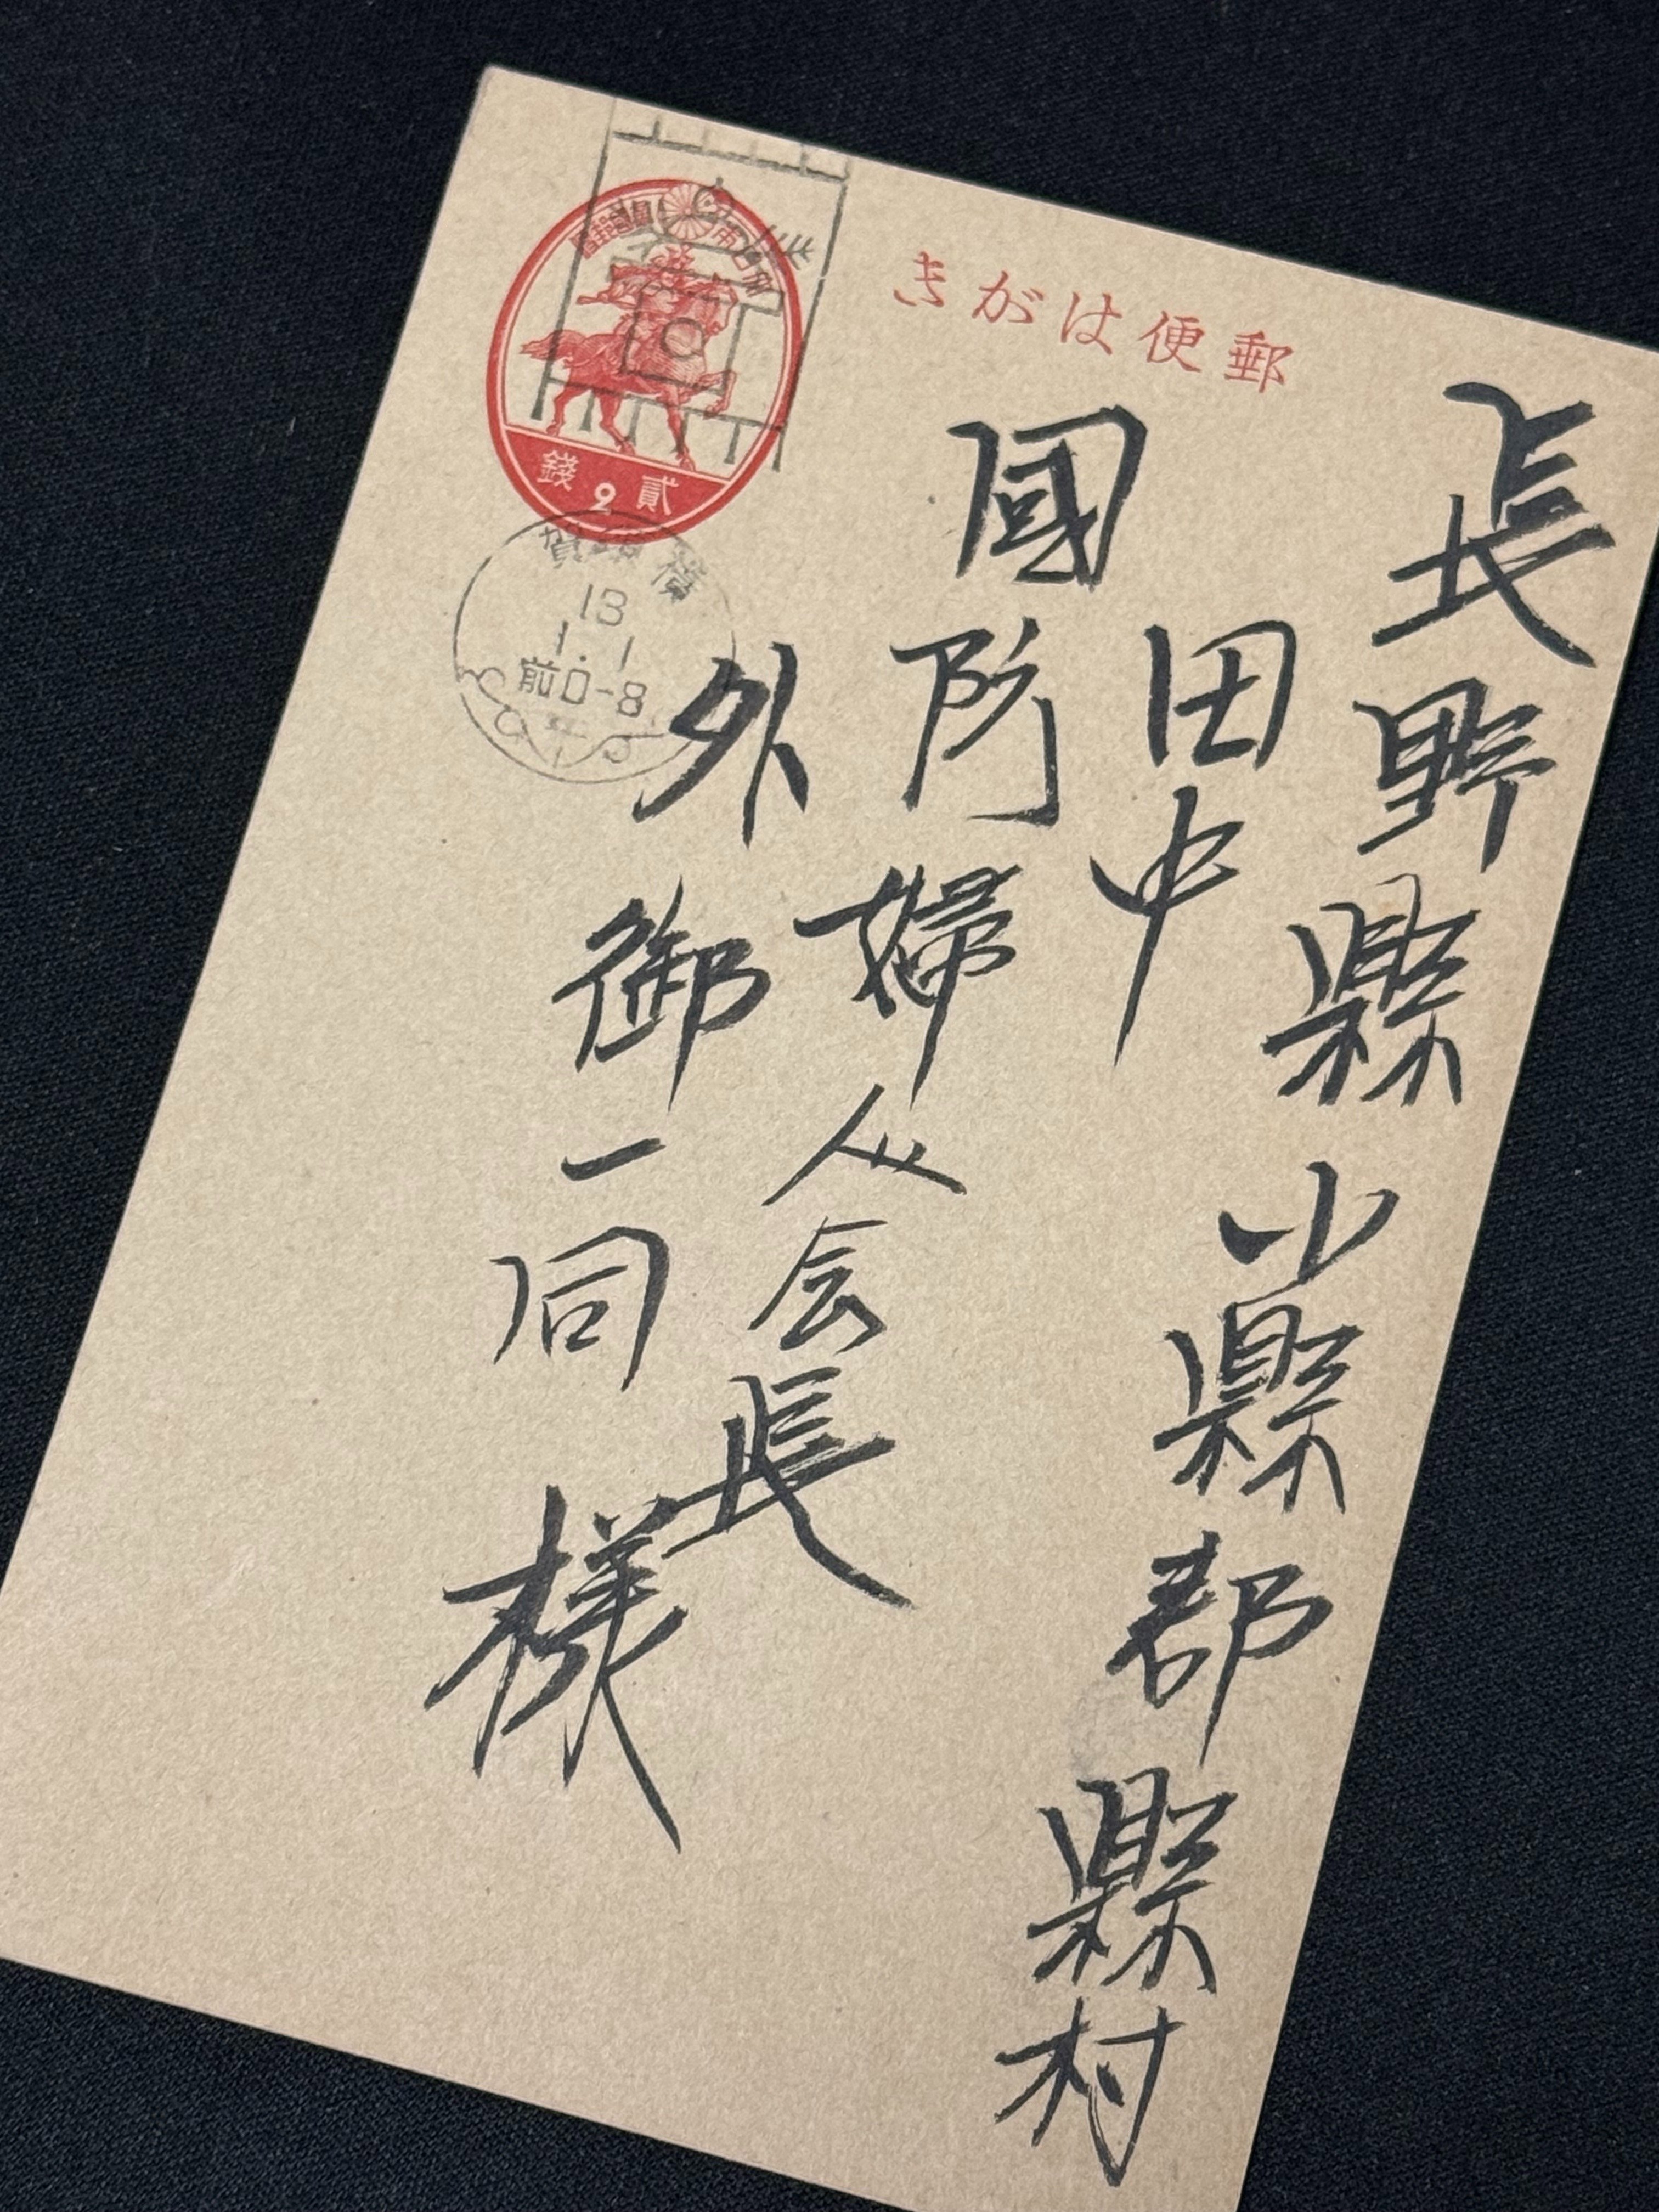 郵便はがき
長野縣小縣郡縣村
田中
國防婦人会長
外御一同様
貳 2 錢
横須賀
13
1.1
前0-8